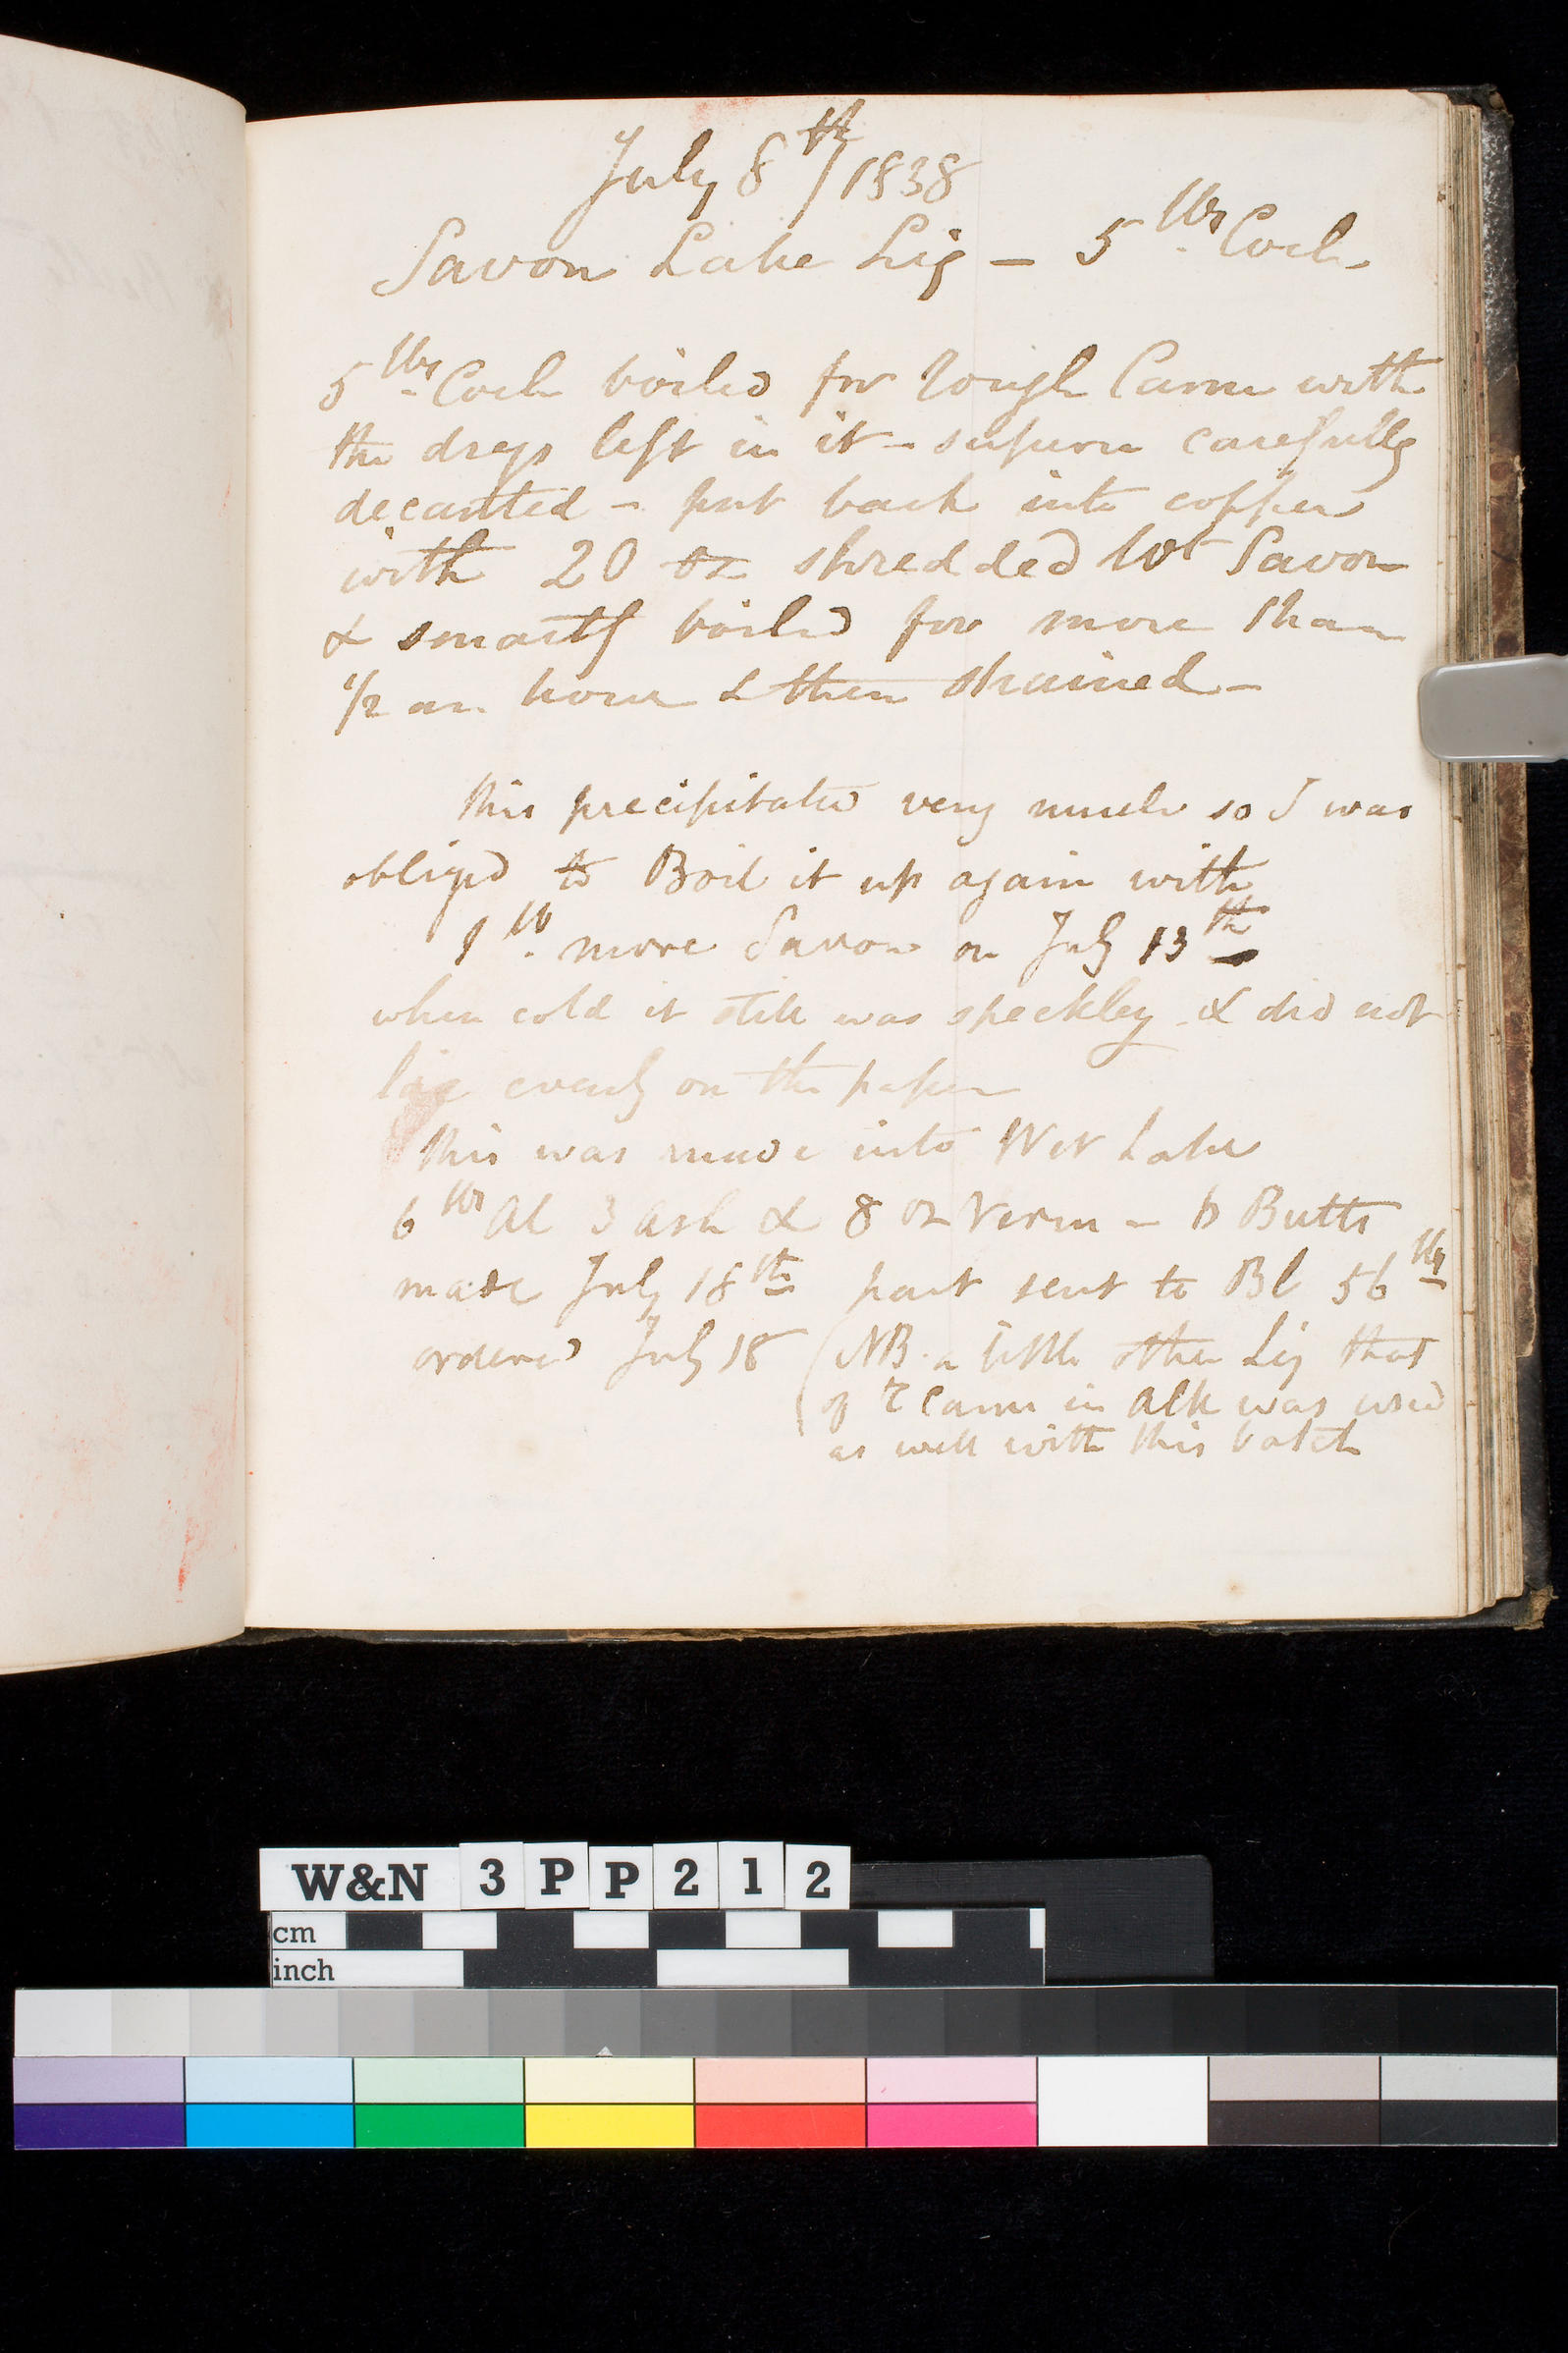 July 8th/1838
Savon Lake Liq – 5 lbs Coch
5 lbs Coch boiled for rough Carm with
the dregs left in it – supern carefully
decanted – put back into copper
with 20 oz shredded Wt Savon
& smartly boiled for more than
1/2 an hour & then strained –
this precipitated very much so I was
obliged to Boil it up again with
1 lb more Savon on July 13th
when cold it still was speckley & did not
lie evenly on the paper
this was made into Wet Lake
6 lbs Al 3 Ash & 8 oz Verm – 6 Butts
made July 18th part sent to Bl 56 lbs
ordered July 18 (NB. a little other Liq that
of Carm in Alk was used
as well with this batch
W&N 3PP212
cm
inch